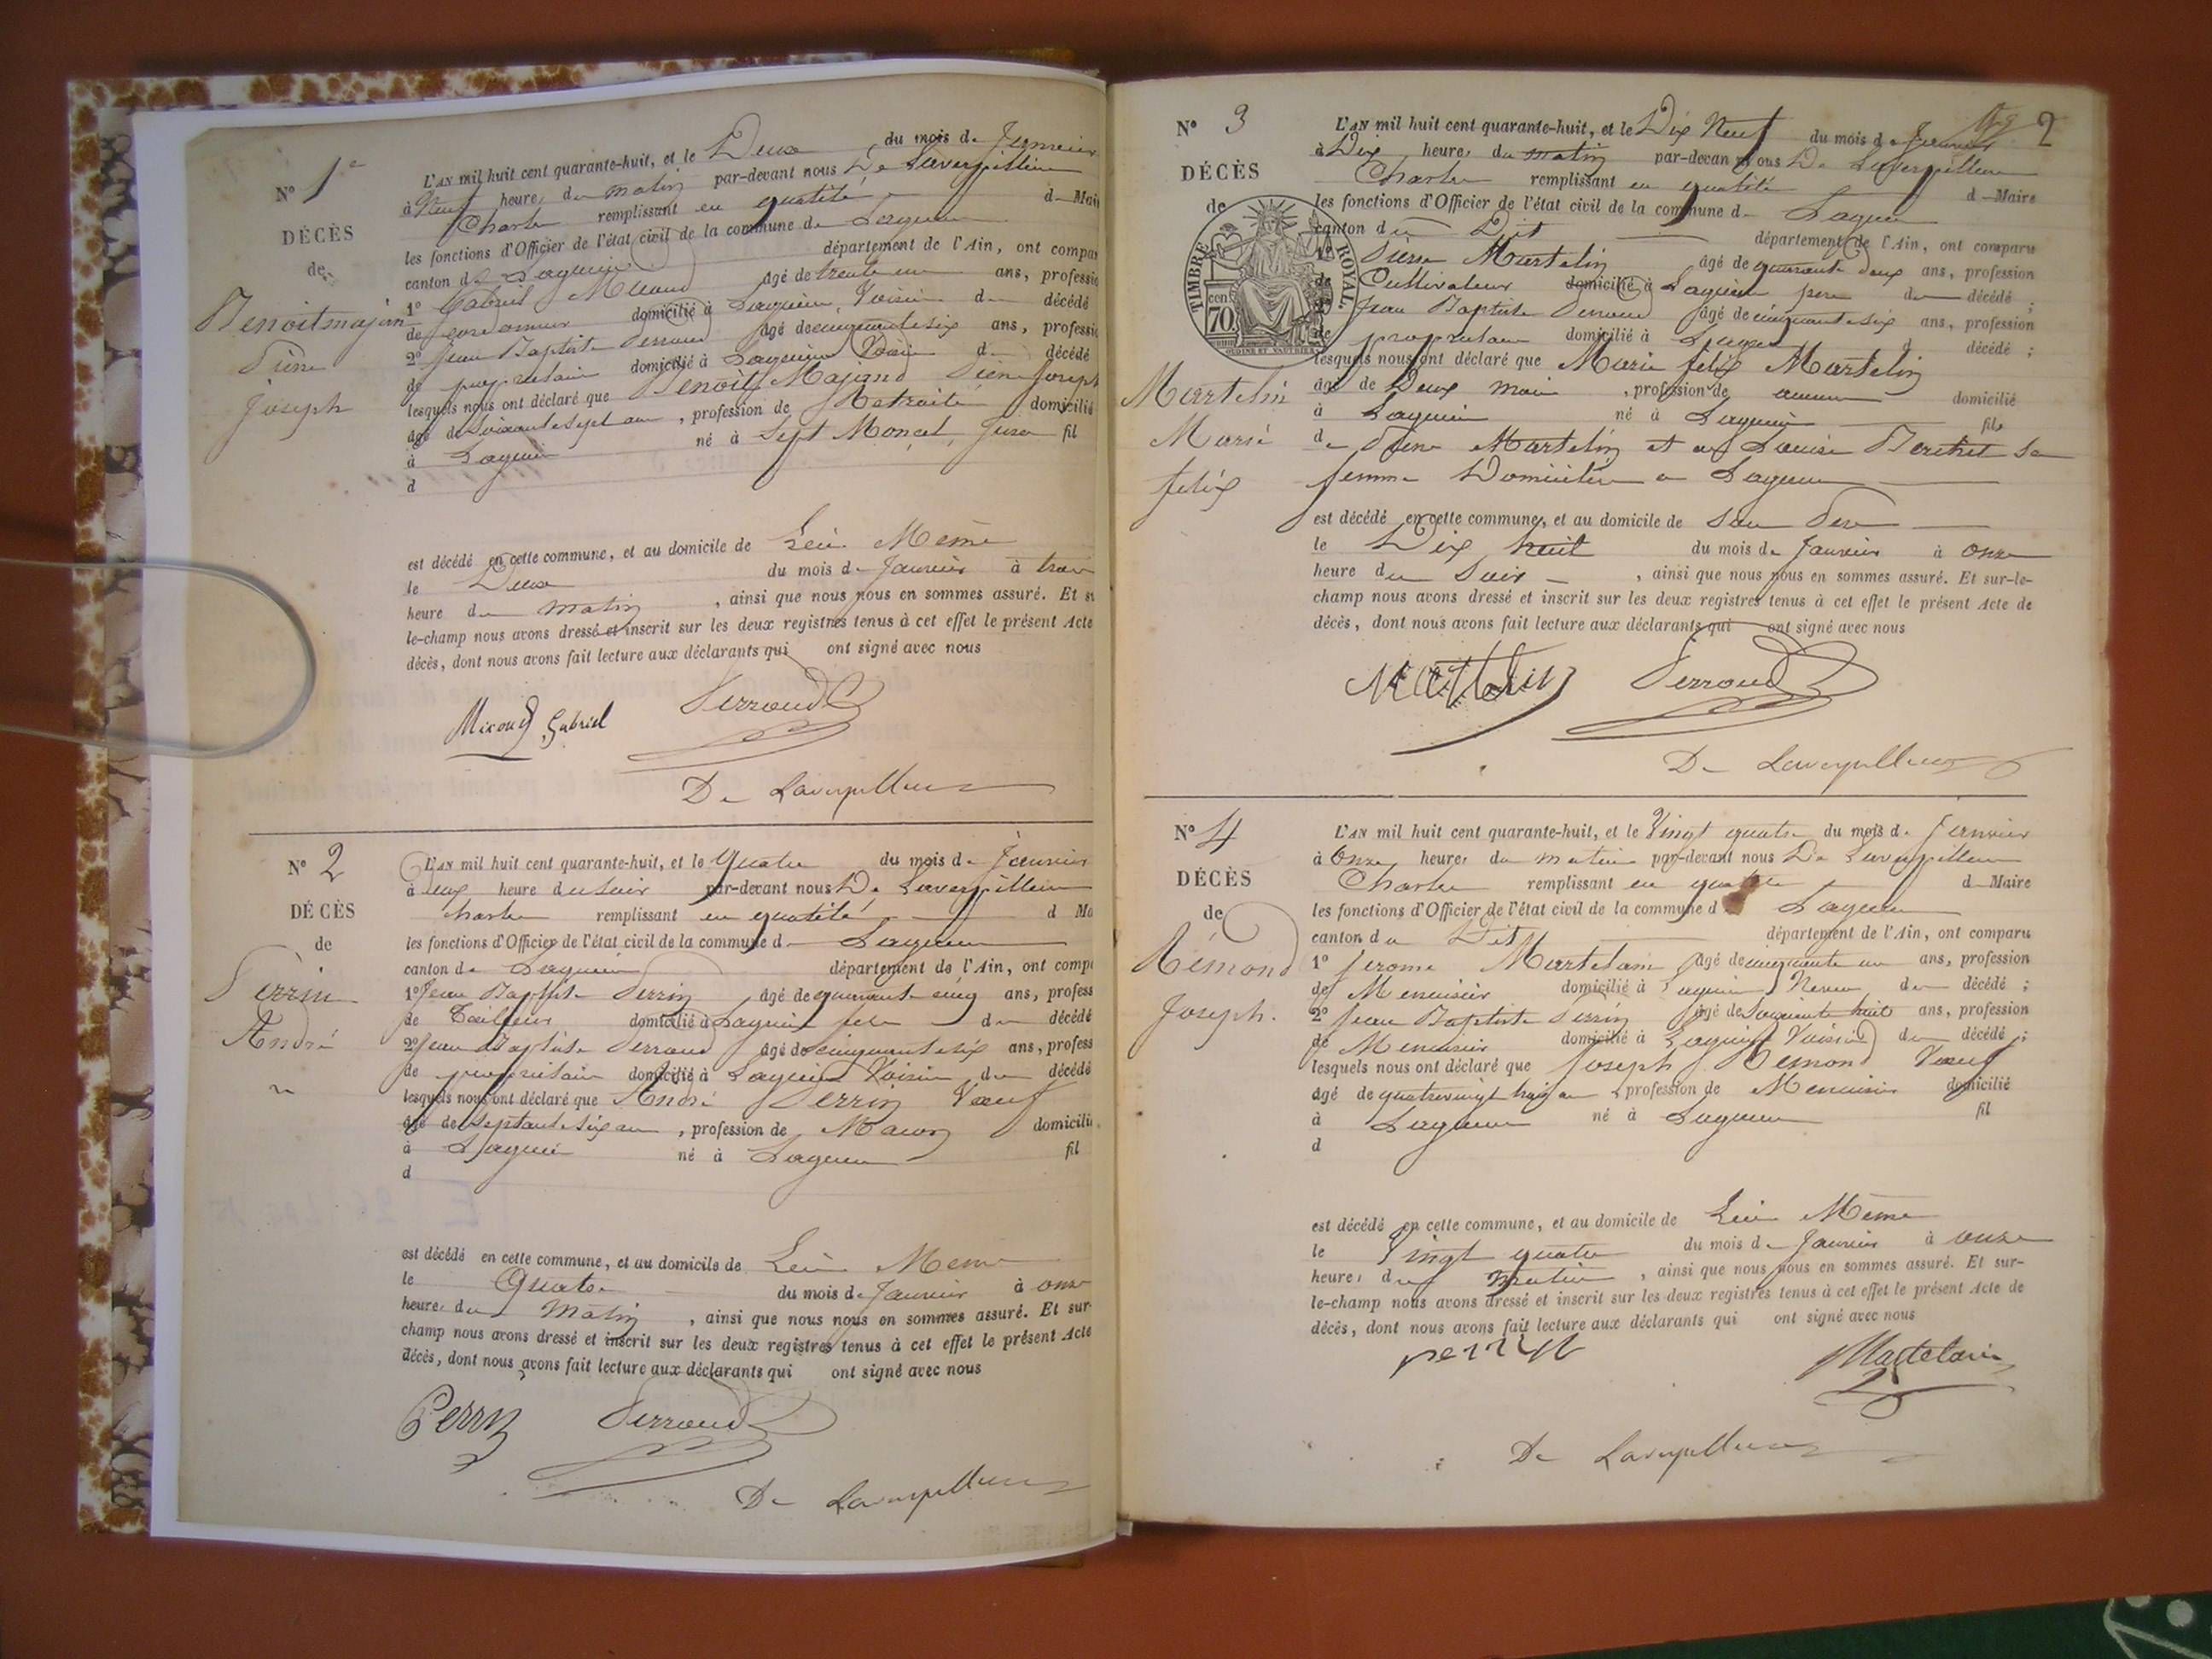 N° 1er
DÉCÈS
de
Benoitmajan
Pierre
Joseph
L'AN mil huit cent quarante-huit, et le Deux du mois de Janvier
à Neuf heure du matin par-devant nous De Laverpillière
Charles remplissant en qualité de Mai
les fonctions d'Officier de l'état civil de la commune de Lagnieu
canton de Lagnieu département de l'Ain, ont compar
1° Gabriel Micoud âgé de trente un ans, professio
de cordonnier domicilié à Lagnieu Voisin du décédé
2° Jean Baptiste Perroud âgé de cinquante six ans, professio
de propriétaire domicilié à Lagnieu Voisin du décédé
lesquels nous ont déclaré que Benoit Majand Pierre Joseph
âgé de Soixante Sept ans, profession de Retraité domicilié
à Lagnieu né à Sept Moncel, Jura fil
d
est décédé en cette commune, et au domicile de Lui Même
le Deux du mois de Janvier à trois
heure du matin, ainsi que nous nous en sommes assuré. Et su
le-champ nous avons dressé et inscrit sur les deux registres tenus à cet effet le présent Acte
décès, dont nous avons fait lecture aux déclarants qui ont signé avec nous
Micoud Gabriel Perroud
De Laverpilliere
N° 2
DÉCÈS
de
Perrin
André
L'AN mil huit cent quarante-huit, et le Quatre du mois de Janvier
à deux heure du soir par-devant nous De Laverpillière
Charles remplissant en qualité d Ma
les fonctions d'Officier de l'état civil de la commune de Lagnieu
canton de Lagnieu département de l'Ain, ont compa
1° Jean Baptiste Perrin âgé de quarante cinq ans, profess
de Tailleur domicilié à Lagnieu fils du décédé
2° Jean Baptiste Perroud âgé de cinquante six ans, profess
de propriétaire domicilié à Lagnieu Voisin du décédé
lesquels nous ont déclaré que André Perrin Veuf
âgé de Septante Six ans, profession de Maçon domicilié
à Lagnieu né à Lagnieu fil
d
est décédé en cette commune, et au domicile de Lui Meme
le Quatre du mois de Janvier à onze
heures du Matin, ainsi que nous nous en sommes assuré. Et sur-
champ nous avons dressé et inscrit sur les deux registres tenus à cet effet le présent Acte
décès, dont nous avons fait lecture aux déclarants qui ont signé avec nous
Perrin Perroud
De Laverpilliere
2
N° 3
DÉCÈS
de
TIMBRE ROYAL
70 cen
Martelin
Marie
felix
L'AN mil huit cent quarante-huit, et le Dix Neuf du mois de Janvier
à Dix heures du matin par-devant nous De Laverpillière
Charles remplissant en qualité de Maire
les fonctions d'Officier de l'état civil de la commune de Lagnieu
canton du Dit département de l'Ain, ont comparu
1° Pierre Martelin âgé de quarante deux ans, profession
de Cultivateur domicilié à Lagnieu père du décédé;
2° Jean Baptiste Perroud âgé de cinquante six ans, profession
de propriétaire domicilié à Lagnieu d décédé;
lesquels nous ont déclaré que Marie felix Martelin
âgé de Deux mois, profession de aucune domicilié
à Lagnieu né à Lagnieu fils
de Pierre Martelin et de Louise Berthet sa
femme Domiciliés a Lagnieu
est décédé en cette commune, et au domicile de son Père
le Dix huit du mois de Janvier à onze
heure du Soir, ainsi que nous nous en sommes assuré. Et sur-le-
champ nous avons dressé et inscrit sur les deux registres tenus à cet effet le présent Acte de
décès, dont nous avons fait lecture aux déclarants qui ont signé avec nous
Martelin Perroud
De Laverpilliere
N° 4
DÉCÈS
de
Rémond
Joseph.
L'AN mil huit cent quarante-huit, et le Vingt quatre du mois de Janvier
à Onze heures du matin par-devant nous De Laverpillière
Charles remplissant en qualité de Maire
les fonctions d'Officier de l'état civil de la commune d Lagnieu
canton du Dit département de l'Ain, ont comparu
1° Jerome Martelain âgé de cinquante un ans, profession
de Menuisier domicilié à Lagnieu Neveu du décédé;
2° Jean Baptiste Perrin âgé de Soixante huit ans, profession
de Menuisier domicilié à Lagnieu Voisin du décédé;
lesquels nous ont déclaré que Joseph Remond Veuf
âgé de quatrevingt trois ans, profession de Menuisier domicilié
à Lagnieu né à Lagnieu fil
d
est décédé en cette commune, et au domicile de Lui Même
le Vingt quatre du mois de Janvier à onze
heures du matin, ainsi que nous nous en sommes assuré. Et sur-
le-champ nous avons dressé et inscrit sur les deux registres tenus à cet effet le présent Acte de
décès, dont nous avons fait lecture aux déclarants qui ont signé avec nous
perrin Martelain
De Laverpilliere